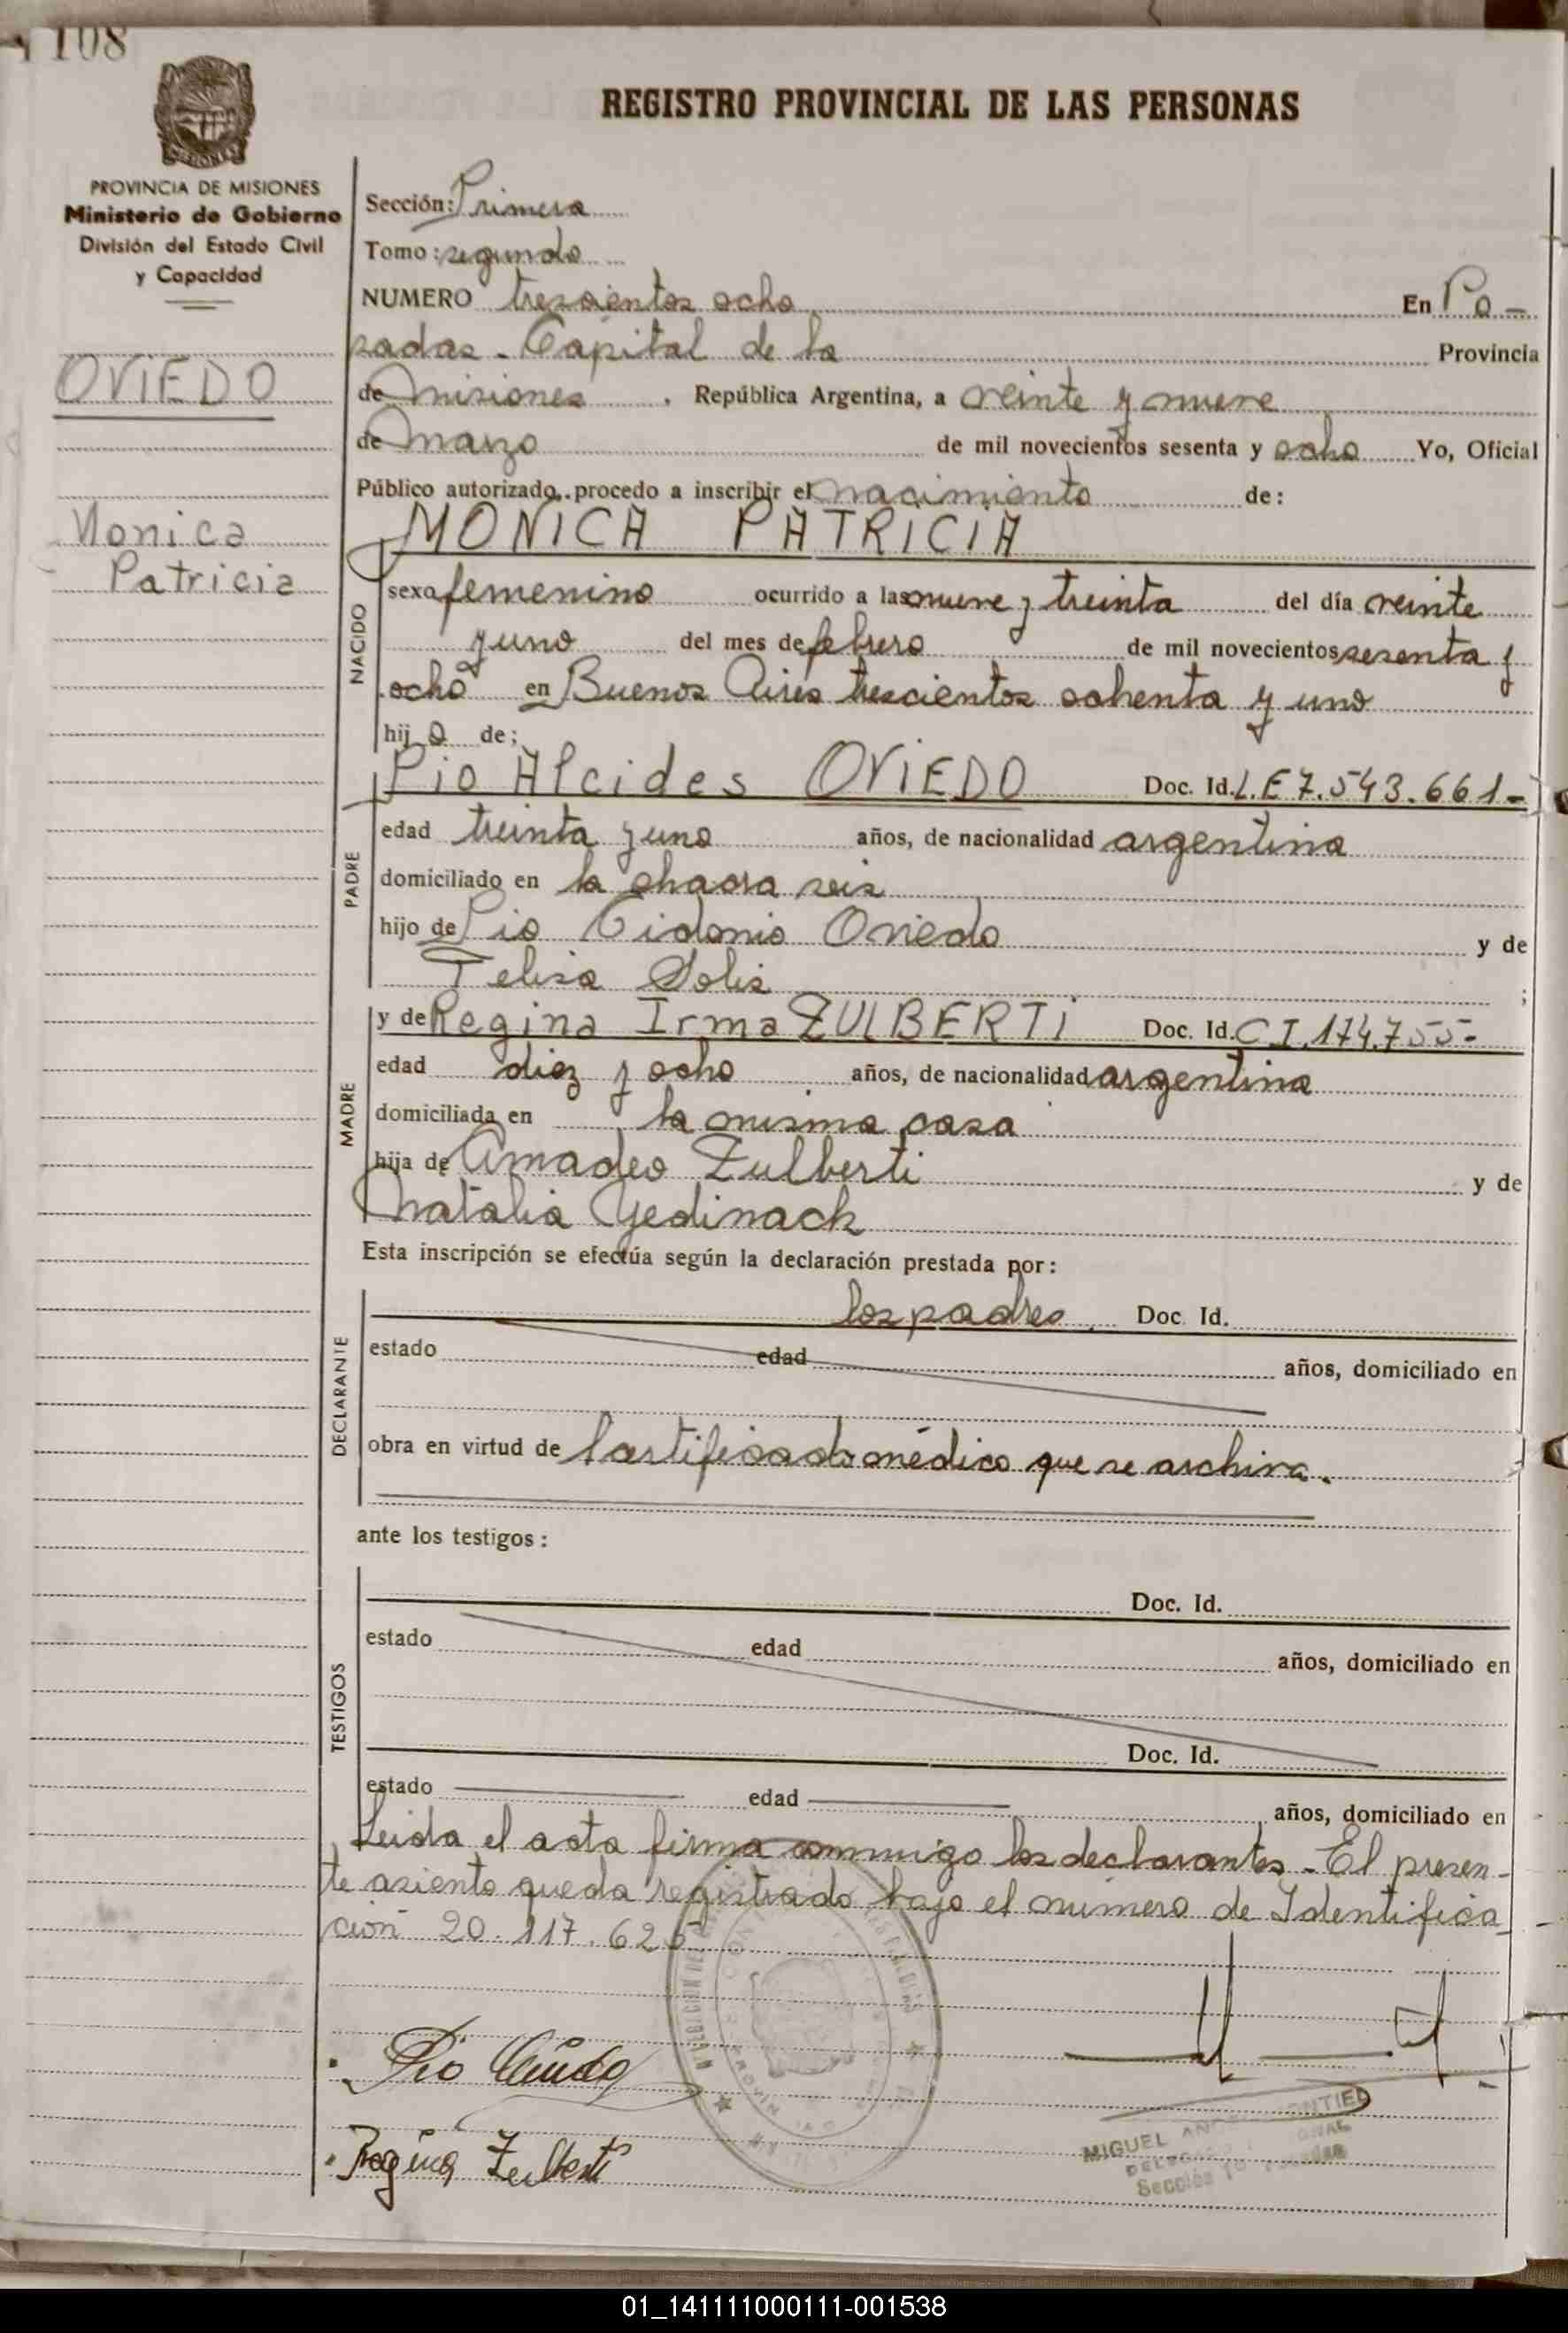 108
REGISTRO PROVINCIAL DE LAS PERSONAS
PROVINCIA DE MISIONES
Ministerio de Gobierno
División del Estado Civil
y Capacidad
OVIEDO
Monica
Patricia
Sección: Primera
Tomo: segundo
NUMERO trescientos ocho En Po-
sadas. Capital de la Provincia
de Misiones. República Argentina, a veinte y nueve
de Marzo de mil novecientos sesenta y ocho Yo, Oficial
Público autorizado, procedo a inscribir el nacimiento de:
MONICA PATRICIA
NACIDO
sexo femenino ocurrido a las nueve y treinta del día veinte
y uno del mes de febrero de mil novecientos sesenta y
ocho en Buenos Aires trescientos ochenta y uno
hij a de;
PADRE
Pio Alcides OVIEDO Doc. Id. L.E 7.543.661-
edad treinta y uno años, de nacionalidad argentina
domiciliado en la chacra seis
hijo de Pio Oviedo y de
Telisa Solis ;
MADRE
y de Regina Irma ZULBERTI Doc. Id. C I. 174.755-
edad diez y ocho años, de nacionalidad argentina
domiciliada en la misma casa
hija de Amadeo Zulberti y de
Natalia Yedinack
Esta inscripción se efectúa según la declaración prestada por:
DECLARANTE
los padres Doc. Id.
estado edad años, domiciliado en
obra en virtud de certificado médico que se archiva.
ante los testigos:
TESTIGOS
Doc. Id.
estado edad años, domiciliado en
Doc. Id.
estado edad años, domiciliado en
Leida el acta firma conmigo los declarantes. El presen-
te asiento queda registrado bajo el número de Identifica
ción 20.117.625
Pio Oviedo
Regina Zulberti
MIGUEL
Sección
01_141111000111-001538